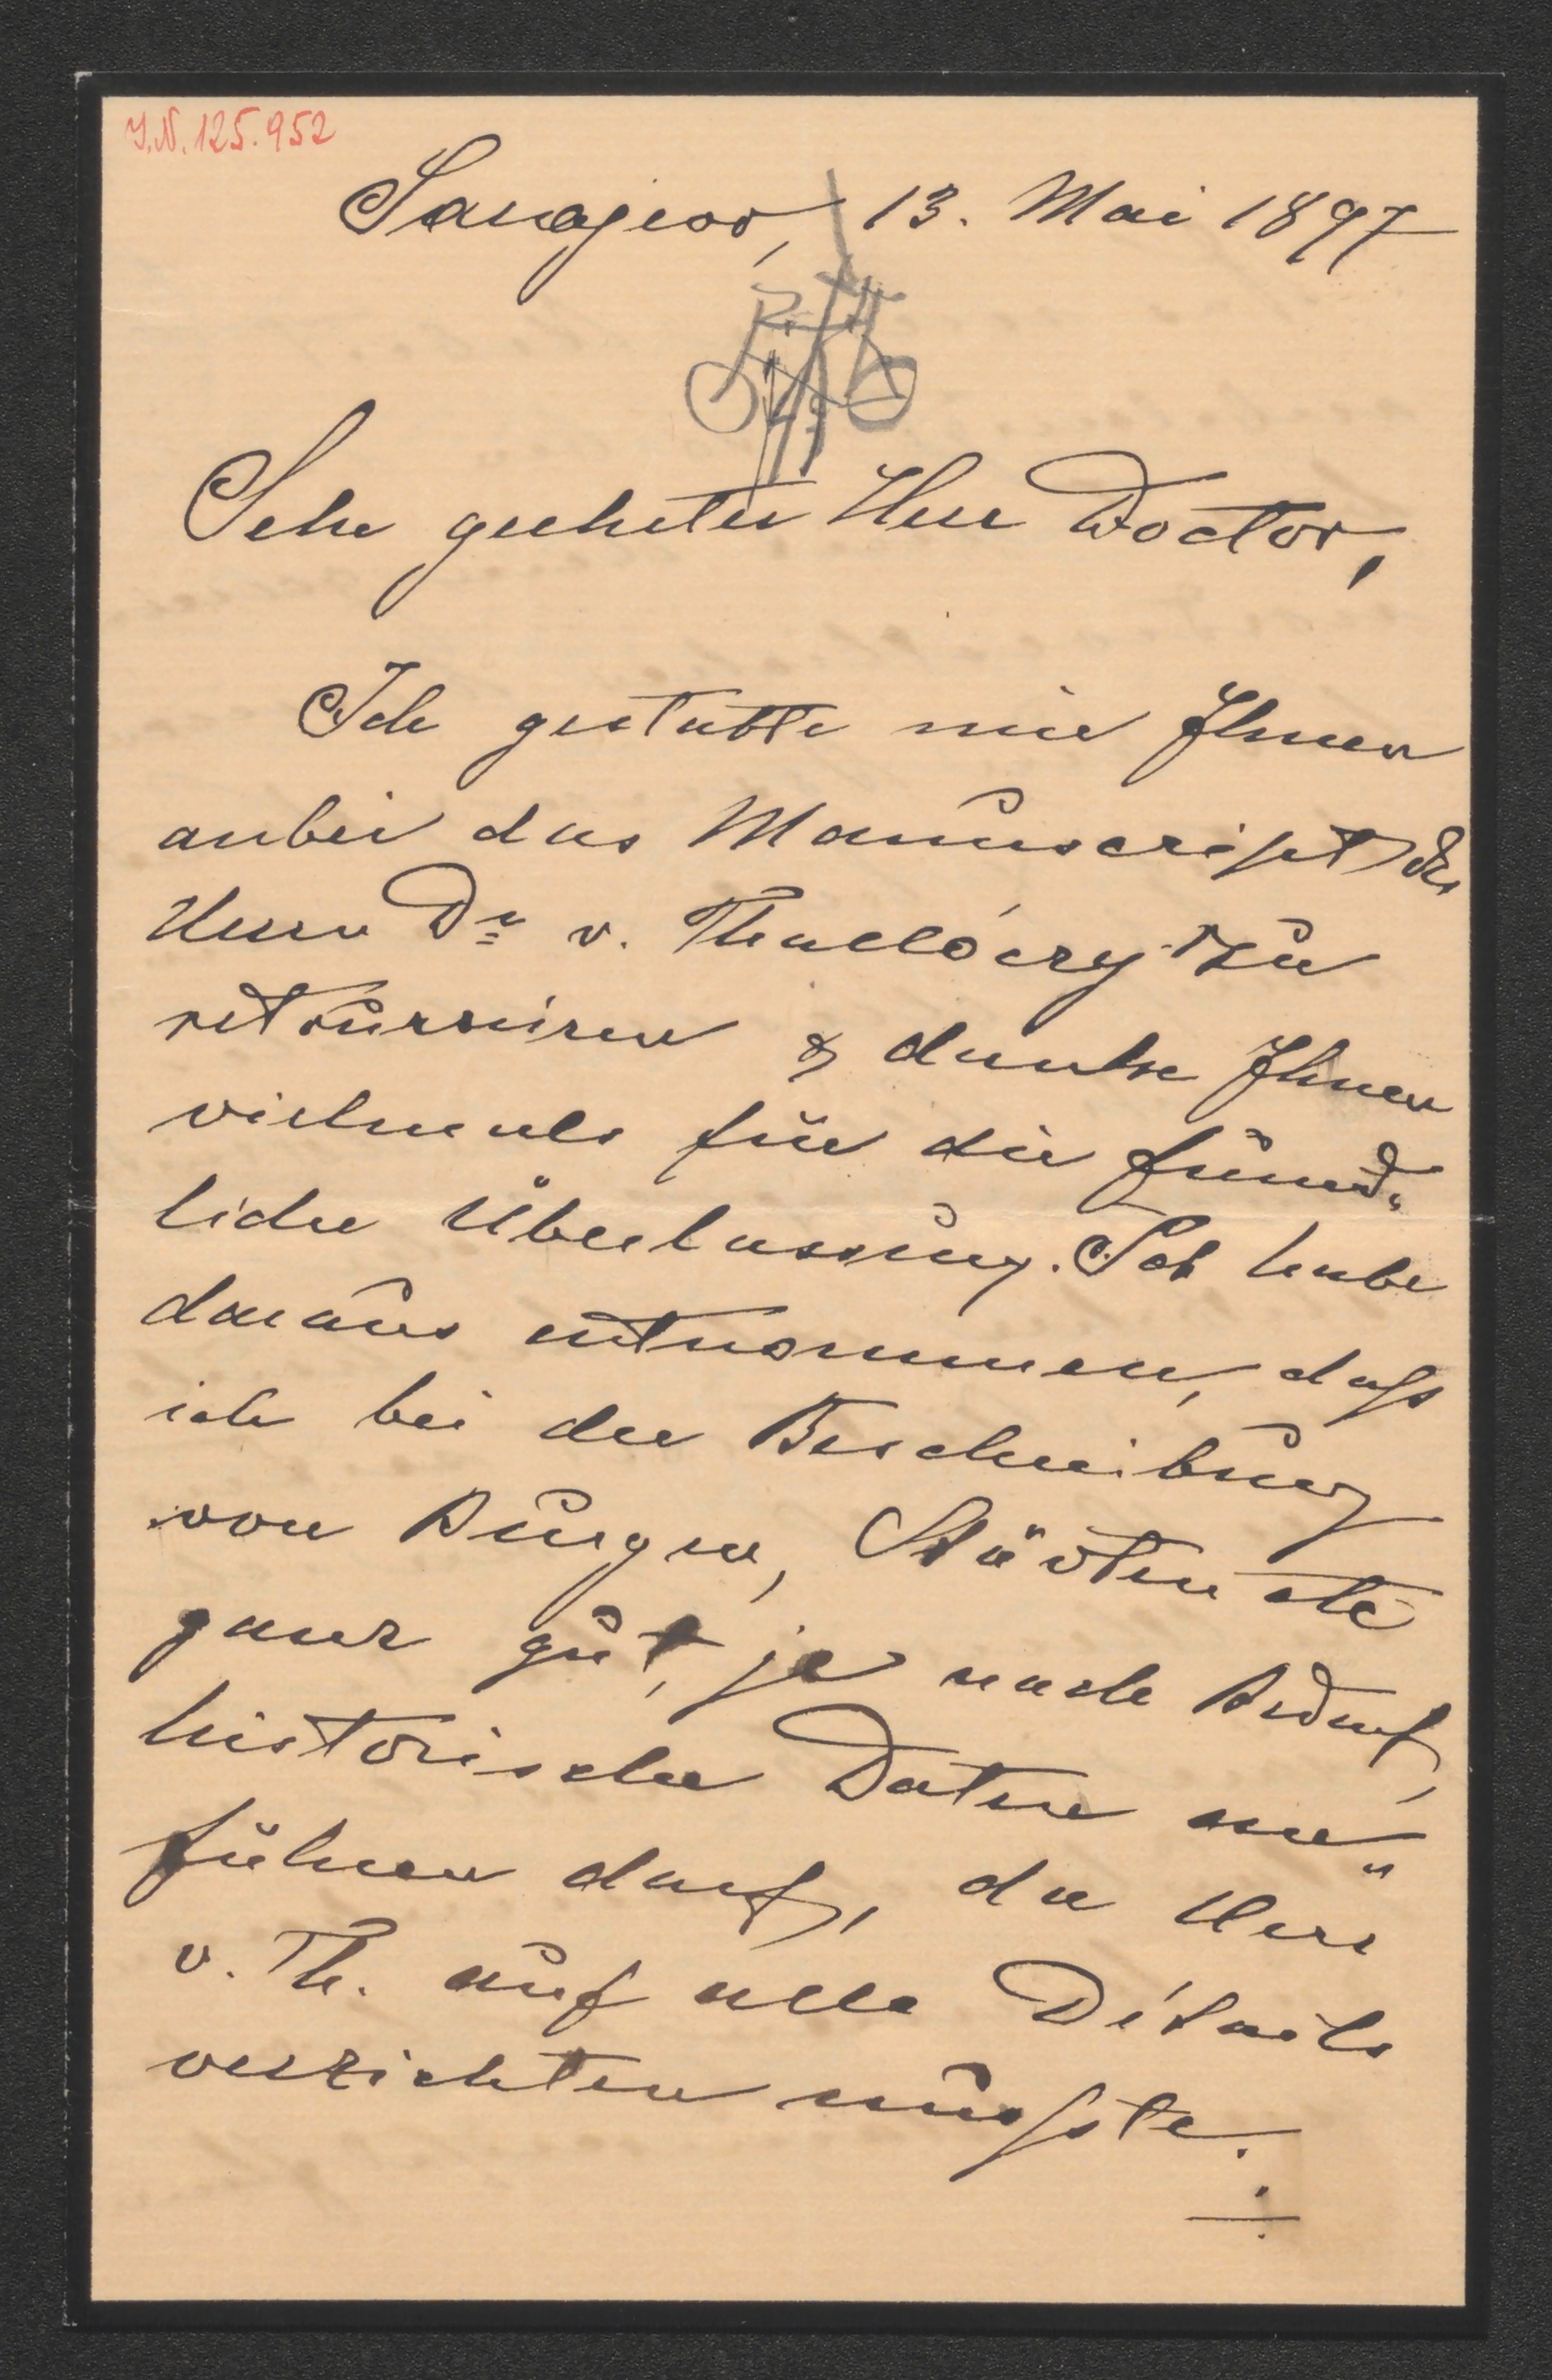 J.N. 125.952
Sarajevo, 13. Mai 1897
Sehr geehrter Herr Doctor,
Ich gestatte mir Ihnen
anbei das Manuscript des
Herrn Dr v. Thallóczy zu
retourniren & danke Ihnen
vielmals für die freund-
liche Überlassung. Ich habe
daraus entnommen, dass
ich bei der Beschreibung
von Burgen, Städten etc
ganz gut, je nach Bedarf,
historische Daten an-
führen darf, da Herr
v. Th. auf alle Détails
verzichten musste.